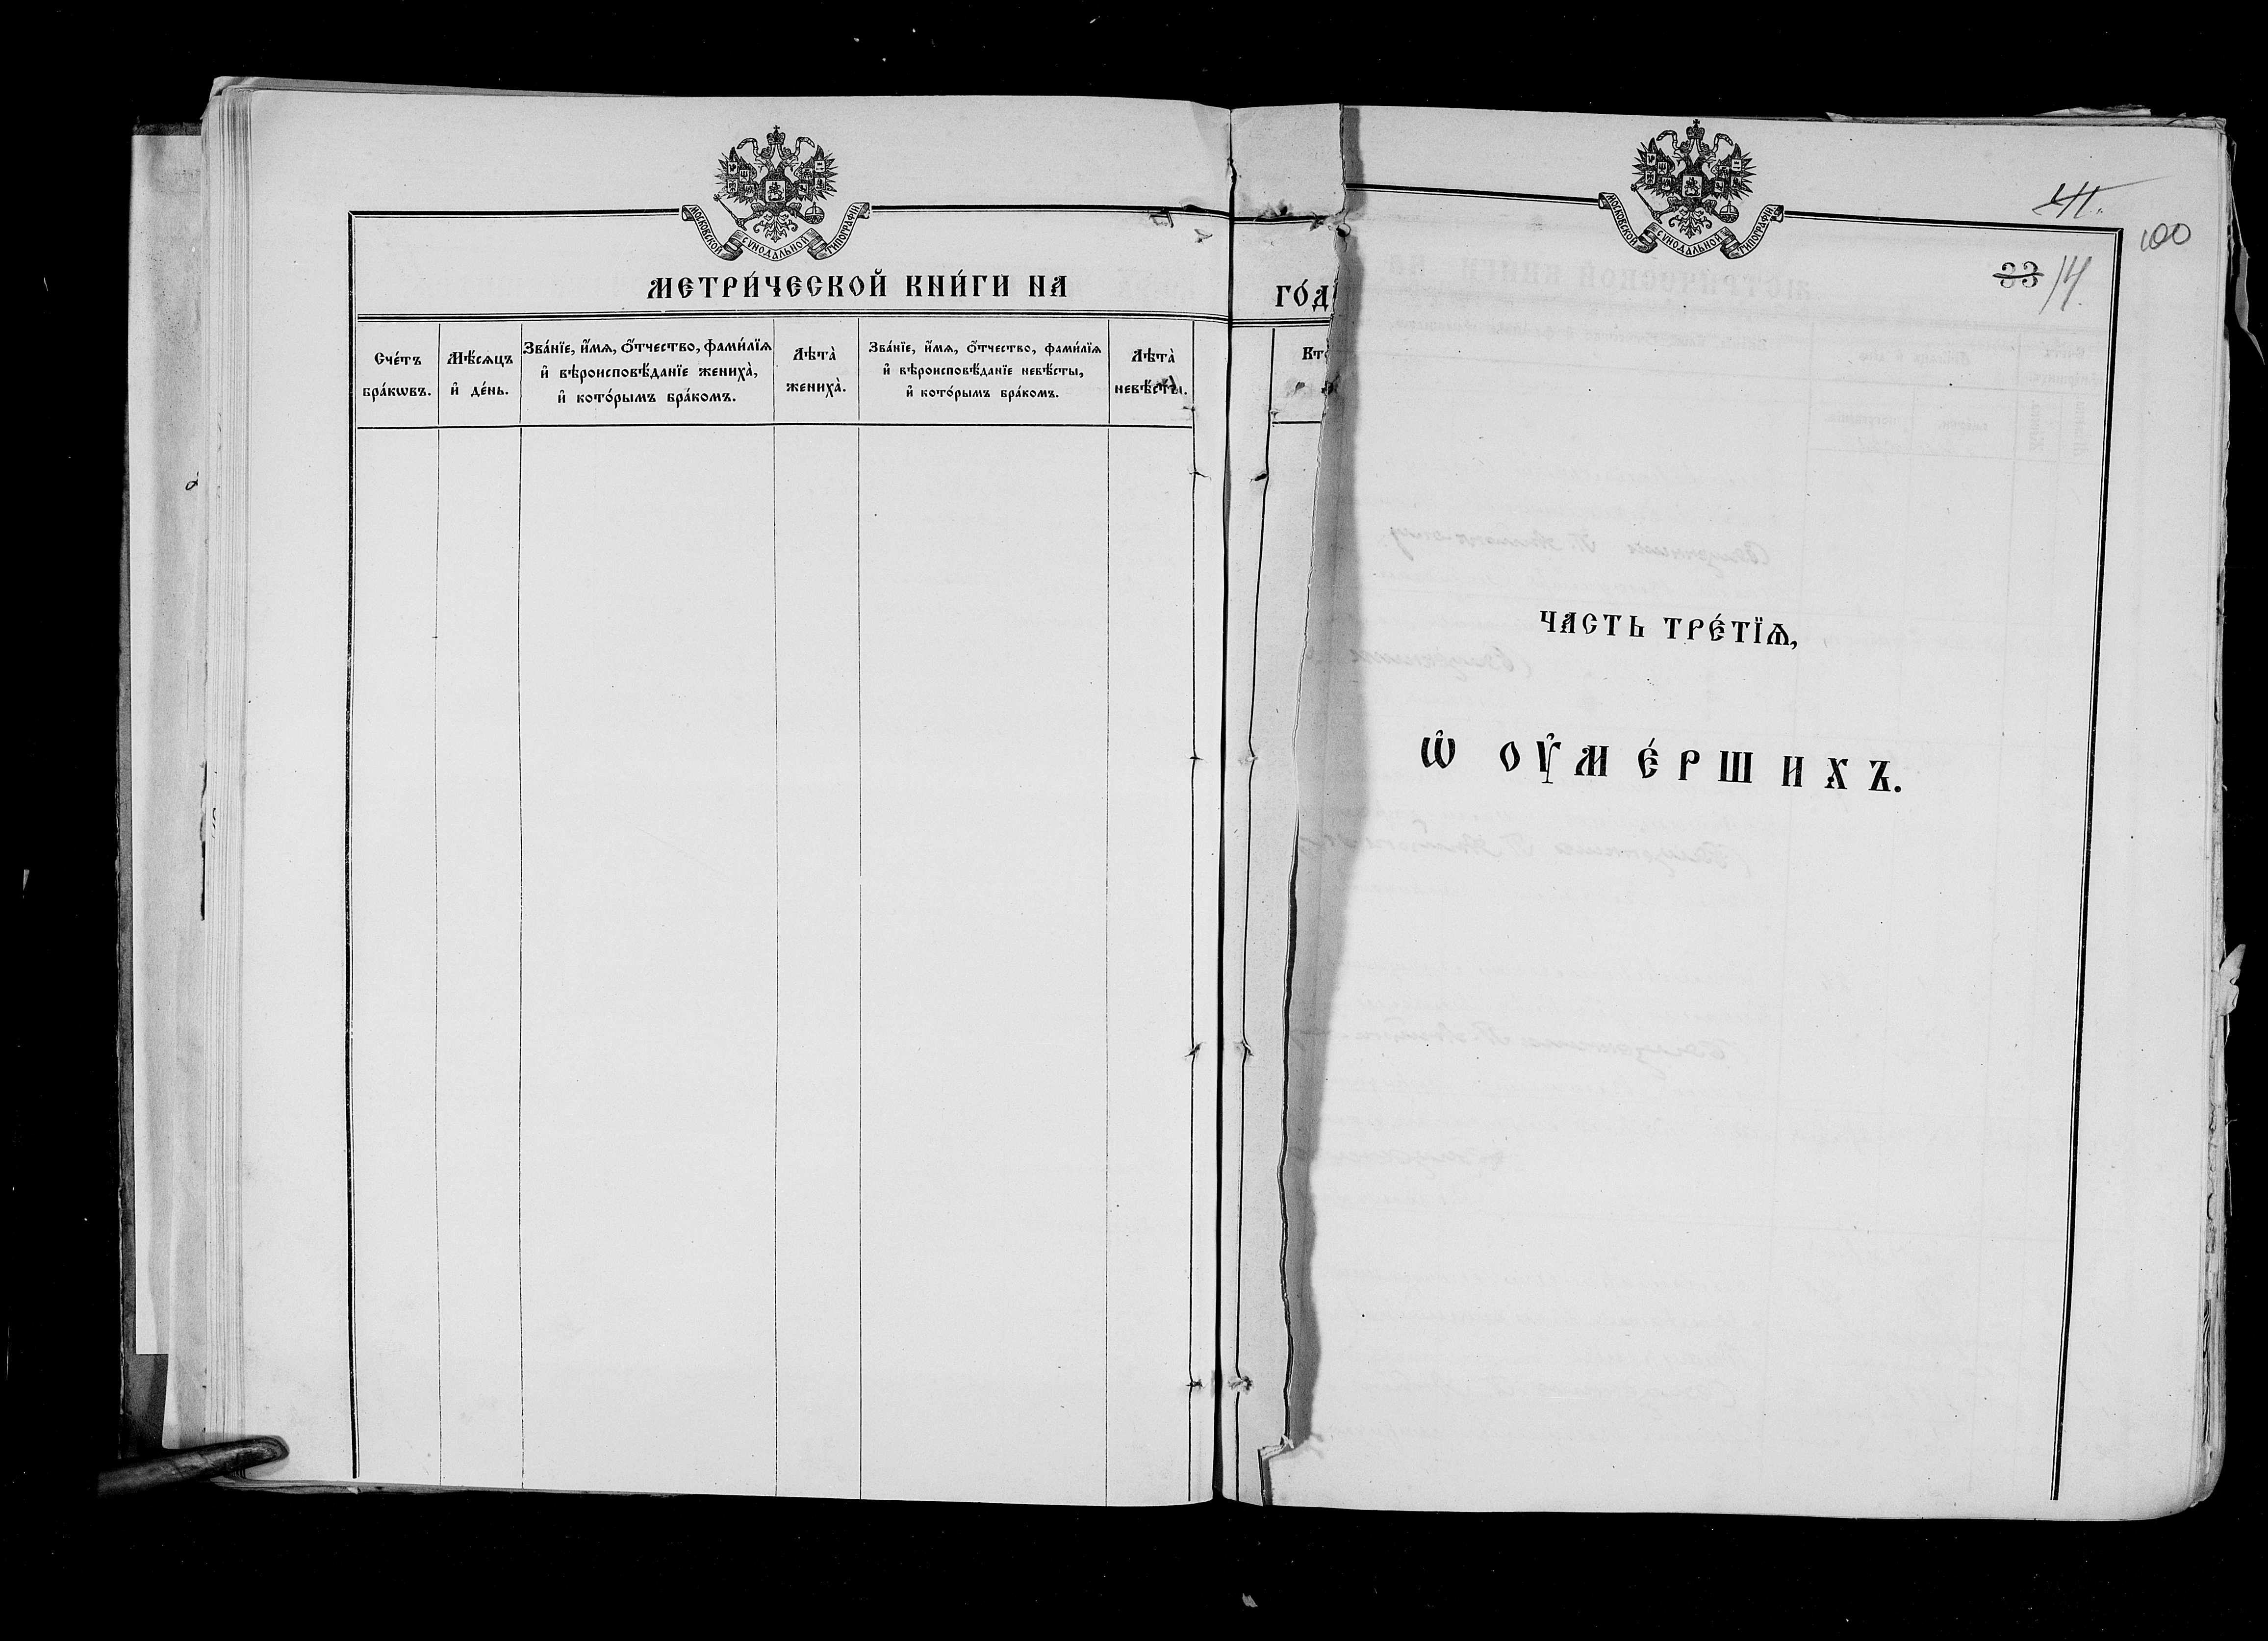 МОСКОВСКОЙ СѴНОДАЛЬНОЙ ТИПОГРАФІИ
МЕТРИ́ЧЕСКОЙ КНИ́ГИ НА
Сче́тъ
бра́кѡвъ.
Мѣ́сѧцъ
и҆ де́нь.
Зва́нїе, и҆́мѧ, ѻ҆́тчество, фами́лїѧ
и҆ вѣроисповѣ́данїе жениха̀,
и҆ кото́рымъ бра́комъ.
Лѣта̀
жениха̀.
Зва́нїе, и҆́мѧ, ѻ҆́тчество, фами́лїѧ
и҆ вѣроисповѣ́данїе невѣ́сты,
и҆ кото́рымъ бра́комъ.
Лѣта̀
невѣ́сты.
ГО́Д
Вто
МОСКОВСКОЙ СѴНОДАЛЬНОЙ ТИПОГРАФІИ
100
33 14.
ЧАСТЬ ТРЕ́ТЇѦ,
Ѡ҆ ОУ҆МЕ́РШИХЪ.